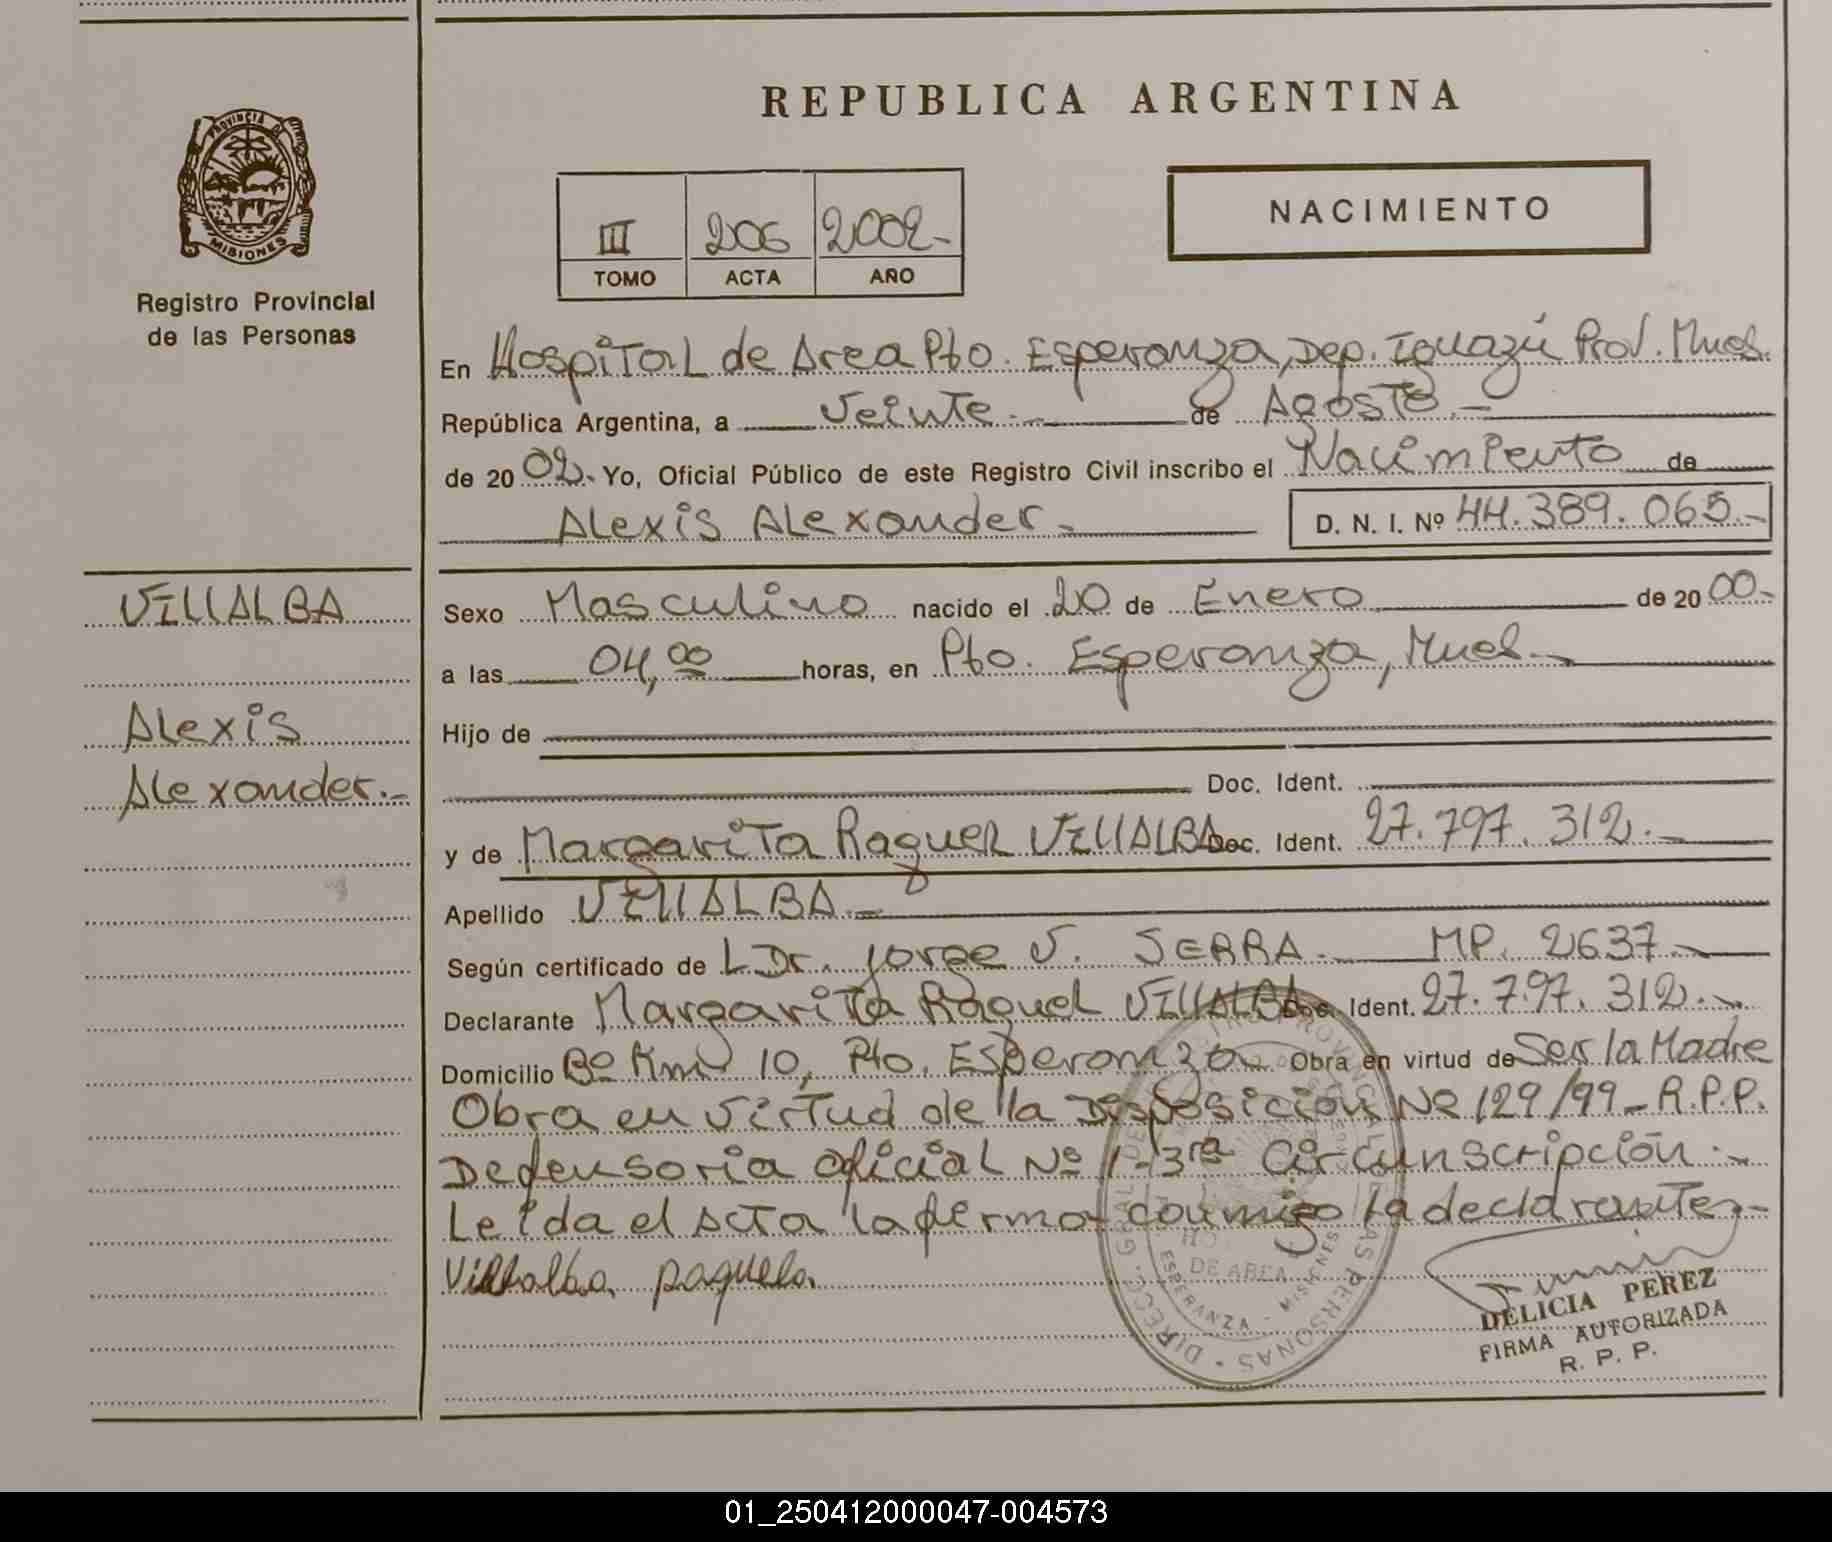 REPUBLICA ARGENTINA
PROVINCIA DE
MISIONES
Registro Provincial
de las Personas
III 206 2002-
TOMO ACTA AÑO
NACIMIENTO
En Hospital de Area Pto. Esperanza, Dep. Iguazú Prov. Mnes.
República Argentina, a Veinte.- de Agosto.-
de 20 02- Yo, Oficial Público de este Registro Civil inscribo el Nacimiento de
Alexis Alexander.- D. N. I. Nº 44.389.065.-
VILLALBA
Alexis
Alexander.-
Sexo Masculino nacido el 20 de Enero de 20 00-
a las 04,00 horas, en Pto. Esperanza, Mnes.-
Hijo de
Doc. Ident.
y de Margarita Raquel VILLALBA Doc. Ident. 27.797.312.-
Apellido VILLALBA.-
Según certificado de L Dr. Jorge V. SERRA.- MP. 2637.-
Declarante Margarita Raquel VILLALBA Doc. Ident. 27.797.312.-
Domicilio Bº Km 10, Pto. Esperanza Obra en virtud de Ser la Madre
Obra en virtud de la Disposición Nº 129/99_R.P.P.
Defensoria oficial Nº 1-3ra Circunscripción.-
Leída el Acta la firma conmigo la declarante.-
Villalba raquel
DE AREA
ESPERANZA - MISIONES
DELICIA PEREZ
FIRMA AUTORIZADA
R. P. P.
01_250412000047-004573